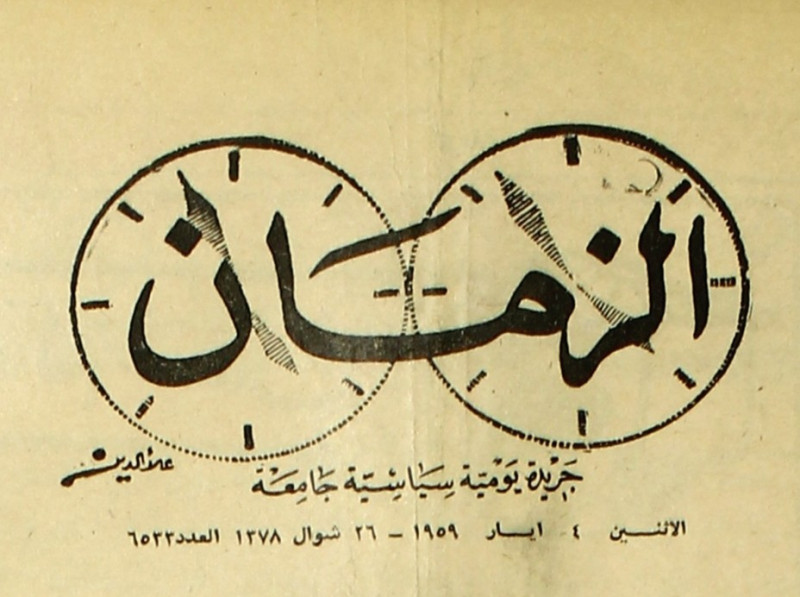 الزمان
جَرِيْدة يَوْميّة سِيَاسْيّة جَامِعَة
علاءالدين
الاثنـــين ٤ ايـــار ١٩٥٩ – ٢٦ شوال ١٣٧٨ العدد ٦٥٣٣